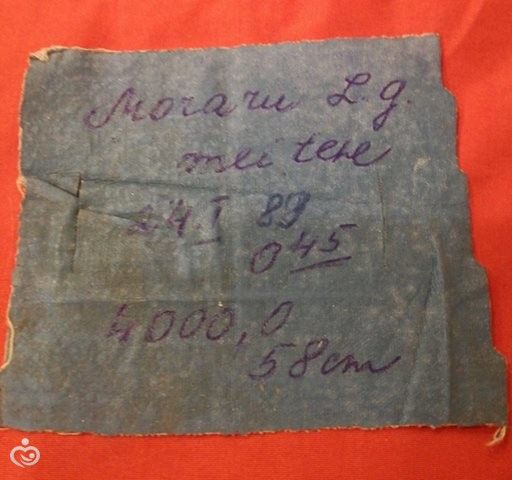 Moraru L. g.
meitene
24 I 89
0 45
4000,0
58cm